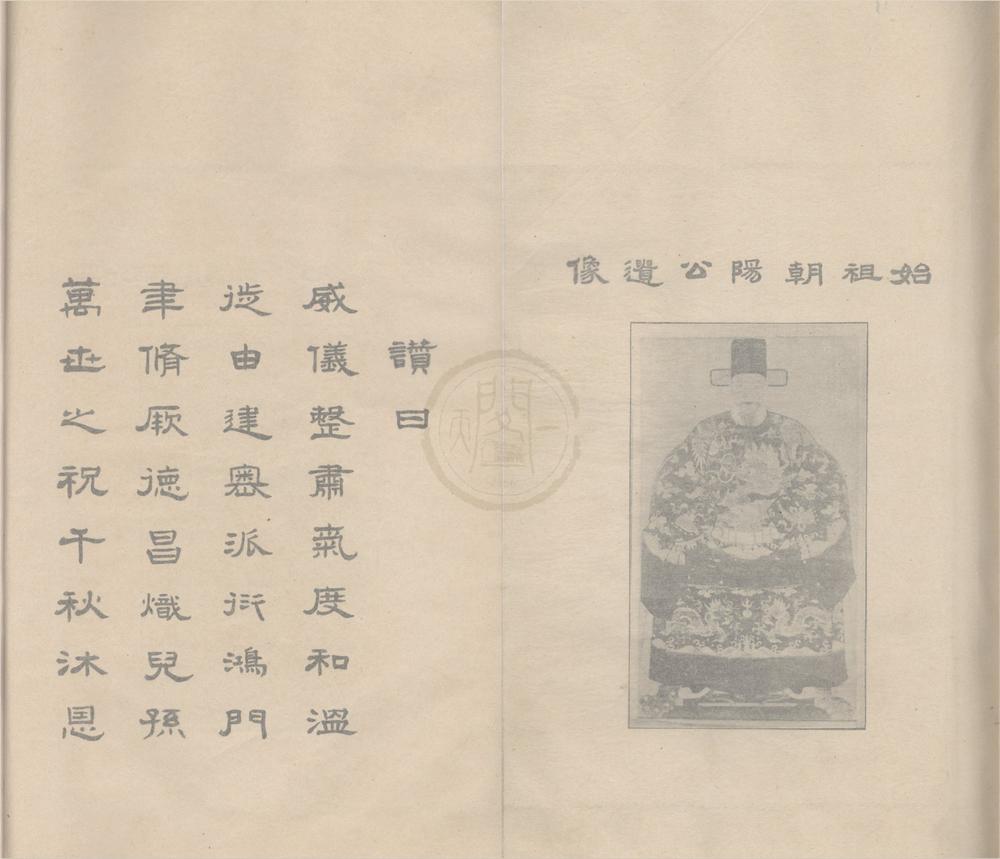 始祖朝陽公遺像
讚曰
威儀整肅氣度和溫
徙由建奧派衍鴻門
聿脩厥德昌熾兒孫
萬世之祝千秋沐恩